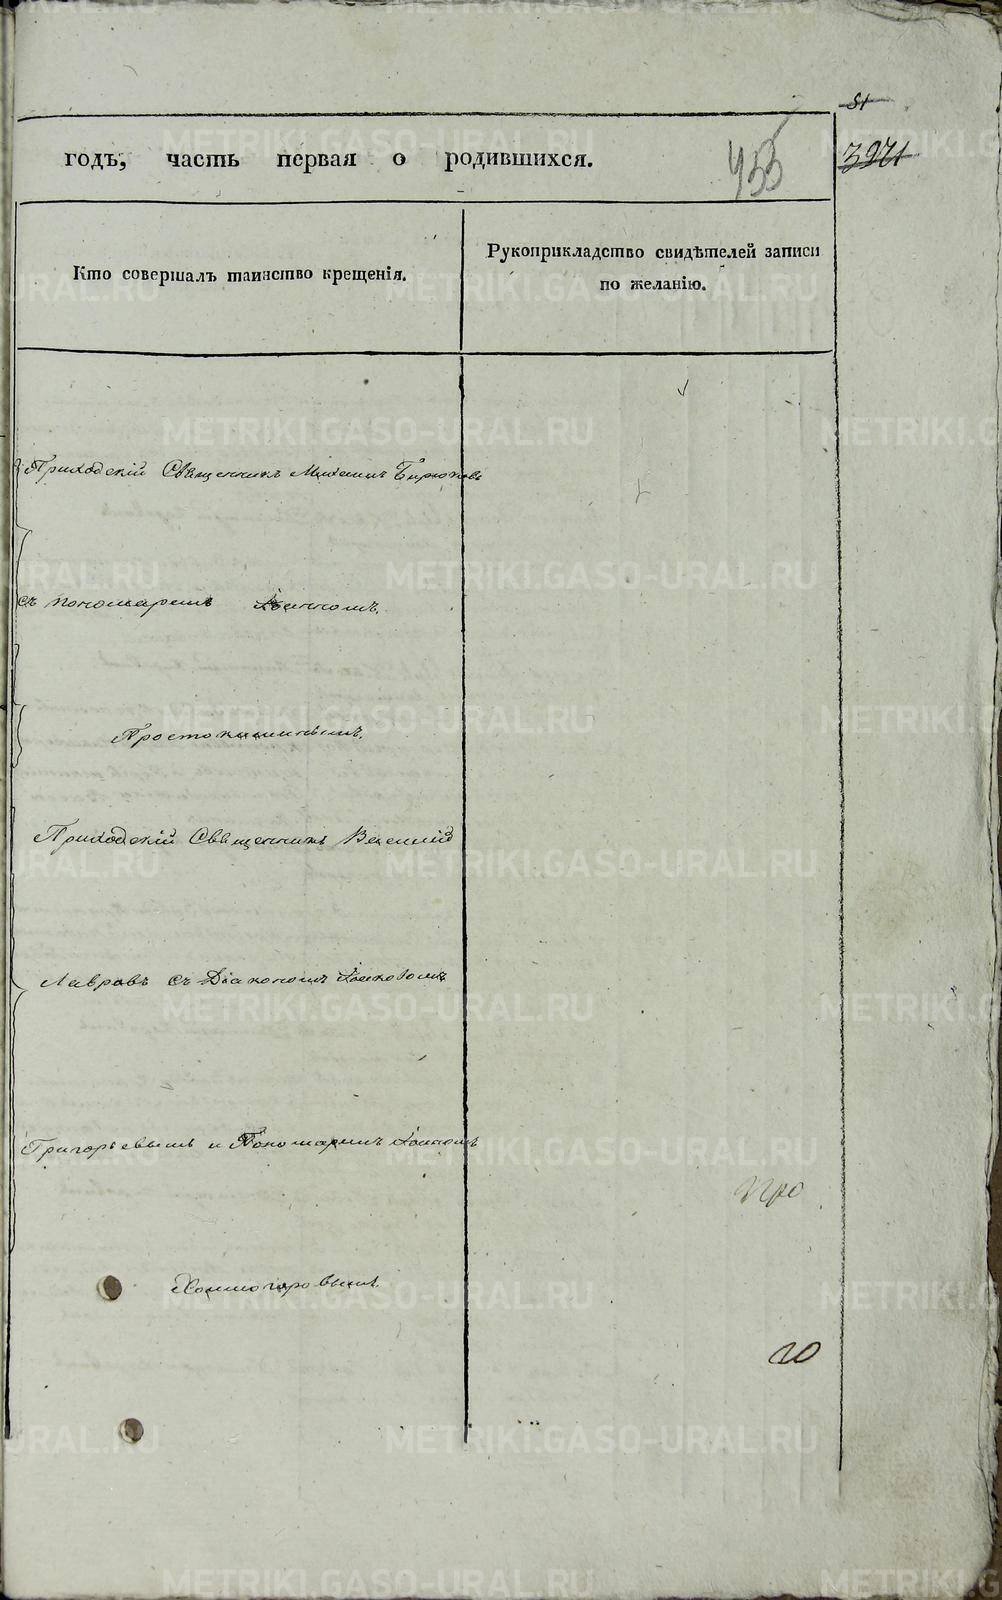 51
годъ, часть первая о родившихся.
433
3971
Кто совершалъ таинство крещенія.
Рукоприкладство свидѣтелей записи
по желанію.
Приходскій Священникъ Михаилъ Бирюковъ
съ пономаремъ Іоанномъ
Простокишинымъ.
Приходскій Священникъ Василій
Лавровъ съ Діакономъ Іаковомъ
Григорьевымъ и Пономаремъ Іоанномъ
Холмогоровымъ.
про
METRIKI.GASO-URAL.RU